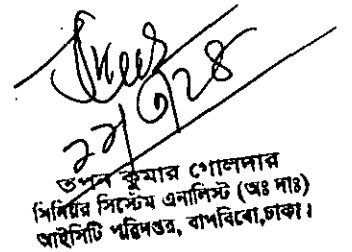 ২২/৩/২৪
তপন কুমার গোলদার
সিনিয়র সিস্টেম এনালিস্ট (অঃ দাঃ)
আইসিটি পরিদপ্তর, বাপবিবো,ঢাকা।